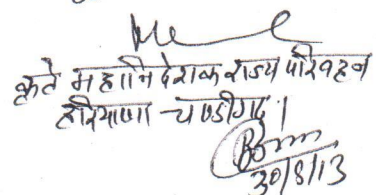 कृते महानिदेशक राज्य परिवहन
हरियाणा चण्डीगढ़।
30/8/13